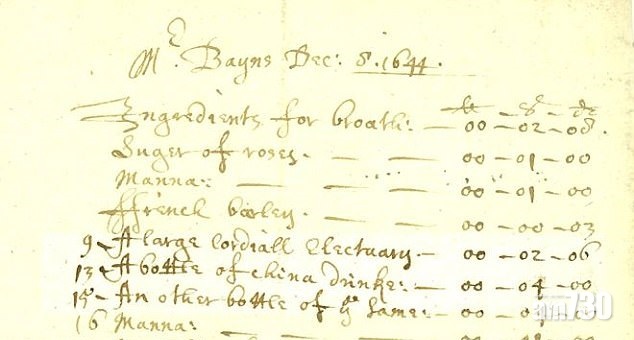 Mr. Bayns Dec: 8. 1644.
li - s - d
Ingredients for broath: - 00 - 02 - 08.
Suger of roses. - - - 00 - 01 - 00
Manna: - - - 00 - 01 - 00
ffrench barley. - - - 00 - 00 - 03
9 - A large Cordiall Electuary. - 00 - 02 - 06
13 - A bottle of china drinke: - 00 - 04 - 00
15 - An other bottle of ye same: - 00 - 04
16 Manna:
am730